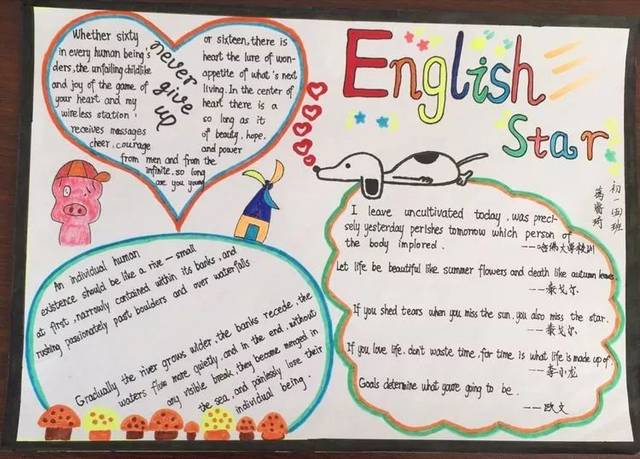 English
Star
初一四班
Whether sixty
in every human being's
ders, the unfailing childlike
and joy of the game of
your heart and my
wireless station
receives massages
cheer, courage
from men and from the
infinite, so long
are you young
never
give
up
or sixteen, there is
heart the lure of won-
appetite of what's next
living. In the center of
heart there is a
so long as it
of beauty, hope,
and power
I leave uncultivated today, was preci-
sely yesterday perishes tomorrow which person of
the body implored. ---哈佛大学校训
Let life be beautiful like summer flowers and death like autumn leaves.
---泰戈尔
If you shed tears when you miss the sun, you also miss the star.
---泰戈尔
If you love life, don't waste time, for time is what life is made up of.
---李小龙
Goals determine what you're going to be.
---欧文
An individual human
existence should be like a rive-small
at first, narrowly contained within its banks, and
rushing passionately past boulders and over waterfalls
Gradually the river grows wider, the banks recede, the
waters flow more quietly, and in the end, without
any visible break, they become merged in
the sea, and painlessly lose their
individual being.